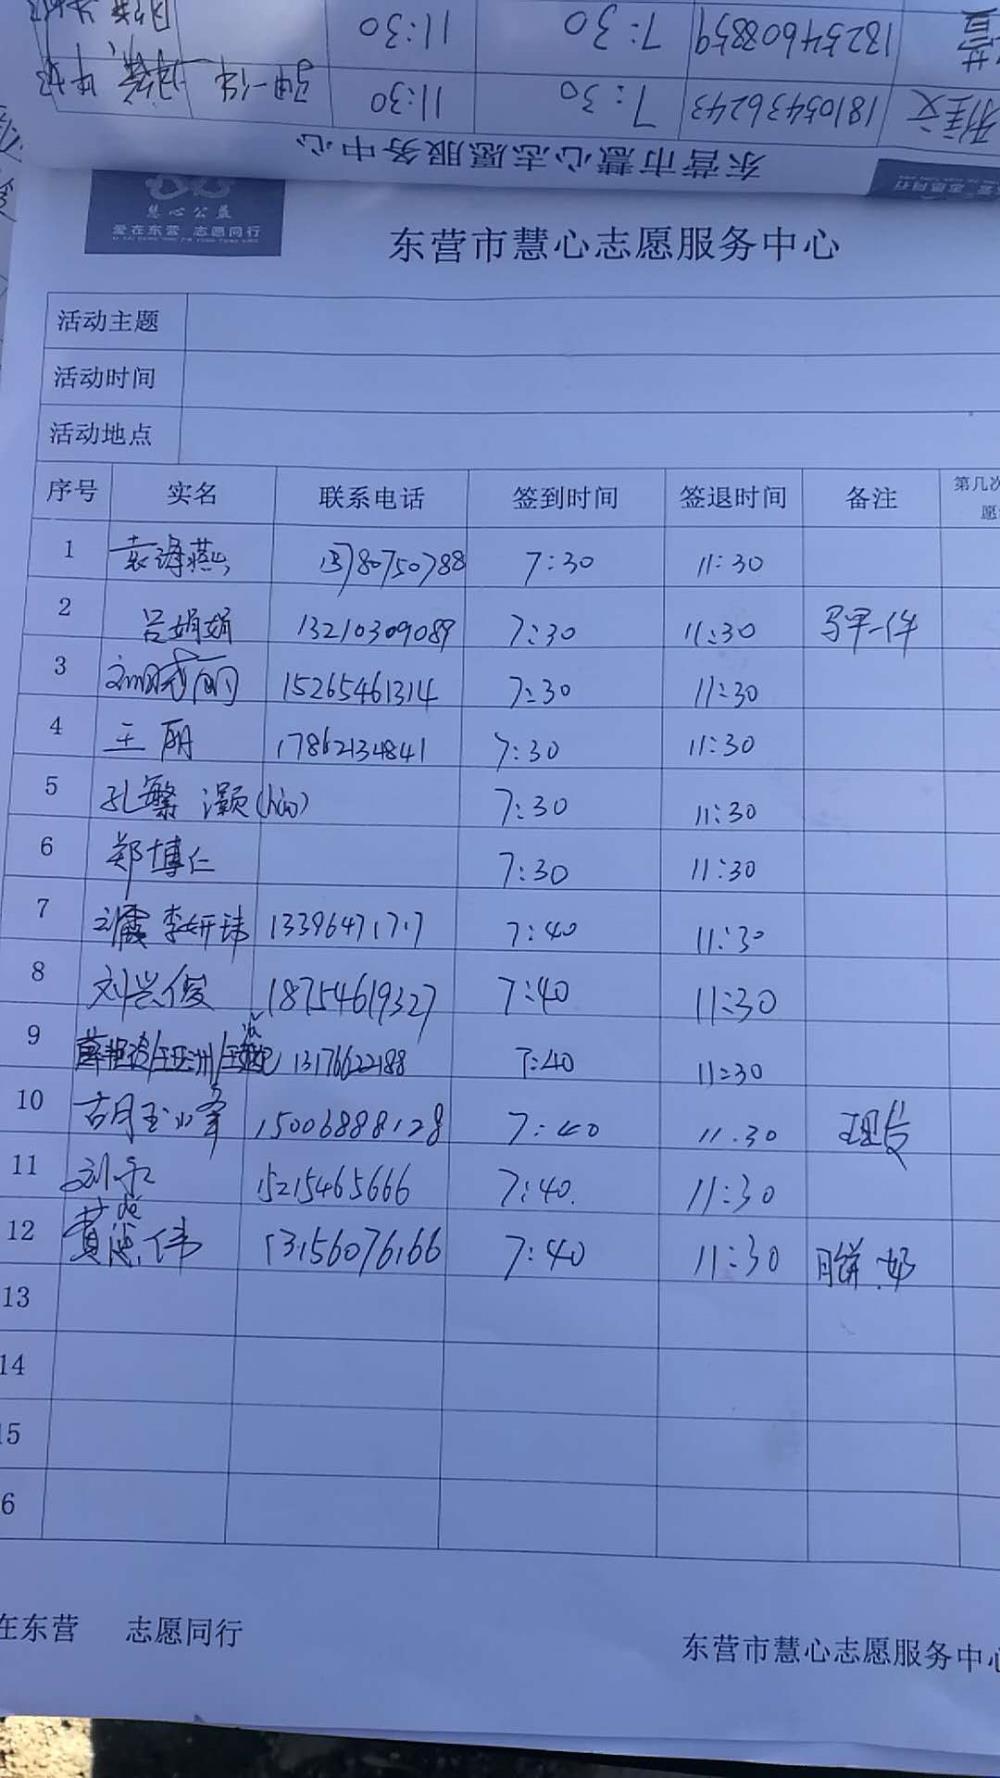 11:30 7:30 13254608859 营
11:30 7:30 18105436243
东营市慧心志愿服务中心
慧心公益
爱在东营 志愿同行
东营市慧心志愿服务中心
活动主题
活动时间
活动地点
序号 实名 联系电话 签到时间 签退时间 备注 第几次
愿
1 袁海燕 13780750788 7:30 11:30
2 吕娟娟 13210309089 7:30 11:30 马甲一件
3 丽 15265461314 7:30 11:30
4 王丽 17862134841 7:30 11:30
5 孔繁灏(hào) 7:30 11:30
6 郑博仁 7:30 11:30
7 刘霞 李妍玮 13396471717 7:40 11:30
8 刘兴俊 18754619327 7:40 11:30
9 王亚洲 13176622188 7:40 11:30
10 胡玉峰 15006888128 7:40 11.30
11 刘 15215465666 7:40. 11:30
12 黄 伟 13156076166 7:40 11:30 月饼.奶
13
14
15
6
在东营 志愿同行
东营市慧心志愿服务中心